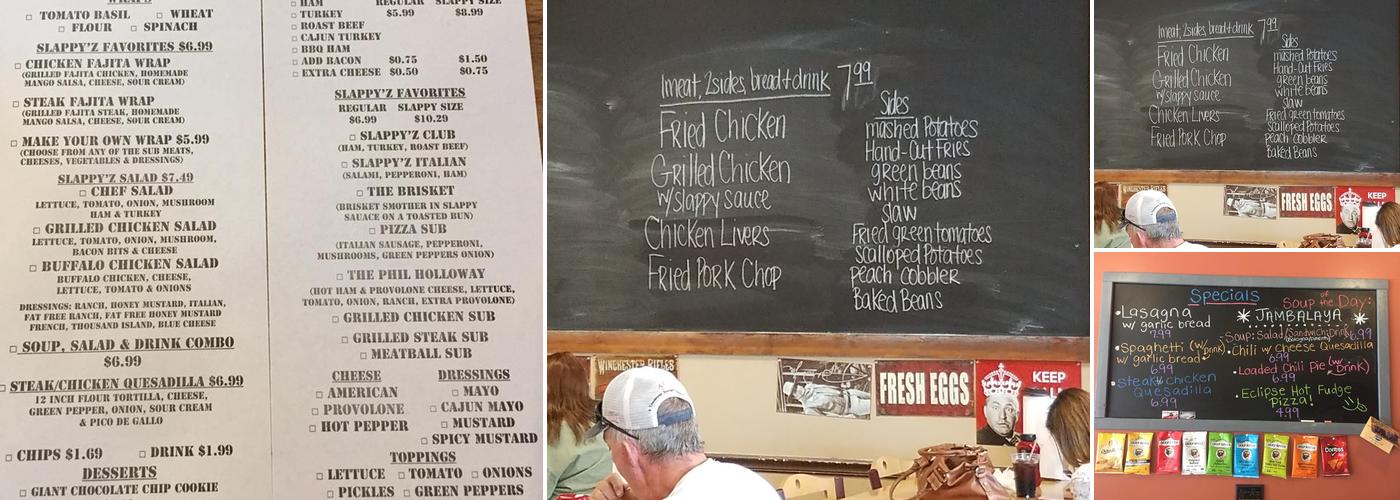 WRAPS
□ TOMATO BASIL □ WHEAT
□ FLOUR □ SPINACH
SLAPPY'Z FAVORITES $6.99
□ CHICKEN FAJITA WRAP
(GRILLED FAJITA CHICKEN, HOMEMADE
MANGO SALSA, CHEESE, SOUR CREAM)
□ STEAK FAJITA WRAP
(GRILLED FAJITA STEAK, HOMEMADE
MANGO SALSA, CHEESE, SOUR CREAM)
□ MAKE YOUR OWN WRAP $5.99
(CHOOSE FROM ANY OF THE SUB MEATS,
CHEESES, VEGETABLES & DRESSINGS)
SLAPPY'Z SALAD $7.49
□ CHEF SALAD
LETTUCE, TOMATO, ONION, MUSHROOM
HAM & TURKEY
□ GRILLED CHICKEN SALAD
LETTUCE, TOMATO, ONION, MUSHROOM,
BACON BITS & CHEESE
□ BUFFALO CHICKEN SALAD
BUFFALO CHICKEN, CHEESE,
LETTUCE, TOMATO & ONIONS
DRESSINGS: RANCH, HONEY MUSTARD, ITALIAN,
FAT FREE RANCH, FAT FREE HONEY MUSTARD
FRENCH, THOUSAND ISLAND, BLUE CHEESE
□ SOUP, SALAD & DRINK COMBO
$6.99
□ STEAK/CHICKEN QUESADILLA $6.99
12 INCH FLOUR TORTILLA, CHEESE,
GREEN PEPPER, ONION, SOUR CREAM
& PICO DE GALLO
□ CHIPS $1.69 □ DRINK $1.99
DESSERTS
□ GIANT CHOCOLATE CHIP COOKIE
□ HAM REGULAR SLAPPY SIZE
□ TURKEY $5.99 $8.99
□ ROAST BEEF
□ CAJUN TURKEY
□ BBQ HAM
□ ADD BACON $0.75 $1.50
□ EXTRA CHEESE $0.50 $0.75
SLAPPY'Z FAVORITES
REGULAR SLAPPY SIZE
$6.99 $10.29
□ SLAPPY'Z CLUB
(HAM, TURKEY, ROAST BEEF)
□ SLAPPY'Z ITALIAN
(SALAMI, PEPPERONI, HAM)
□ THE BRISKET
(BRISKET SMOTHER IN SLAPPY
SAUACE ON A TOASTED BUN)
□ PIZZA SUB
(ITALIAN SAUSAGE, PEPPERONI,
MUSHROOMS, GREEN PEPPERS ONION)
□ THE PHIL HOLLOWAY
(HOT HAM & PROVOLONE CHEESE, LETTUCE,
TOMATO, ONION, RANCH, EXTRA PROVOLONE)
□ GRILLED CHICKEN SUB
□ GRILLED STEAK SUB
□ MEATBALL SUB
CHEESE DRESSINGS
□ AMERICAN □ MAYO
□ PROVOLONE □ CAJUN MAYO
□ HOT PEPPER □ MUSTARD
□ SPICY MUSTARD
TOPPINGS
□ LETTUCE □ TOMATO □ ONIONS
□ PICKLES □ GREEN PEPPERS
1meat, 2sides, bread+drink 7.99
Sides
Fried Chicken
Grilled Chicken
w/slappy sauce
Chicken Livers
Fried Pork Chop
mashed Potatoes
Hand-Cut Fries
green beans
white beans
slaw
Fried green tomatoes
scalloped Potatoes
peach cobbler
Baked Beans
WINCHESTER RIFLES
FRESH EGGS
KEEP
1meat, 2sides, bread+drink 7.99
Sides
Fried Chicken
Grilled Chicken
w/slappy sauce
Chicken Livers
Fried Pork Chop
mashed Potatoes
Hand-Cut Fries
green beans
white beans
slaw
Fried green tomatoes
scalloped Potatoes
peach cobbler
Baked Beans
WINCHESTER RIFLES
FRESH EGGS
KEEP
Specials
• Lasagna
w/ garlic bread
7.99
• Spaghetti (w/ Drink)
w/ garlic bread
6.99
• Steak/chicken
Quesadilla
6.99
Soup of the Day:
JAMBALAYA
• Soup: Salad/Sandwich: Drink 6.99
• Chili w/ Cheese Quesadilla
6.99
• Loaded Chili Pie (w/ Drink)
6.99
• Eclipse Hot Fudge
Pizza!
4.99
Doritos